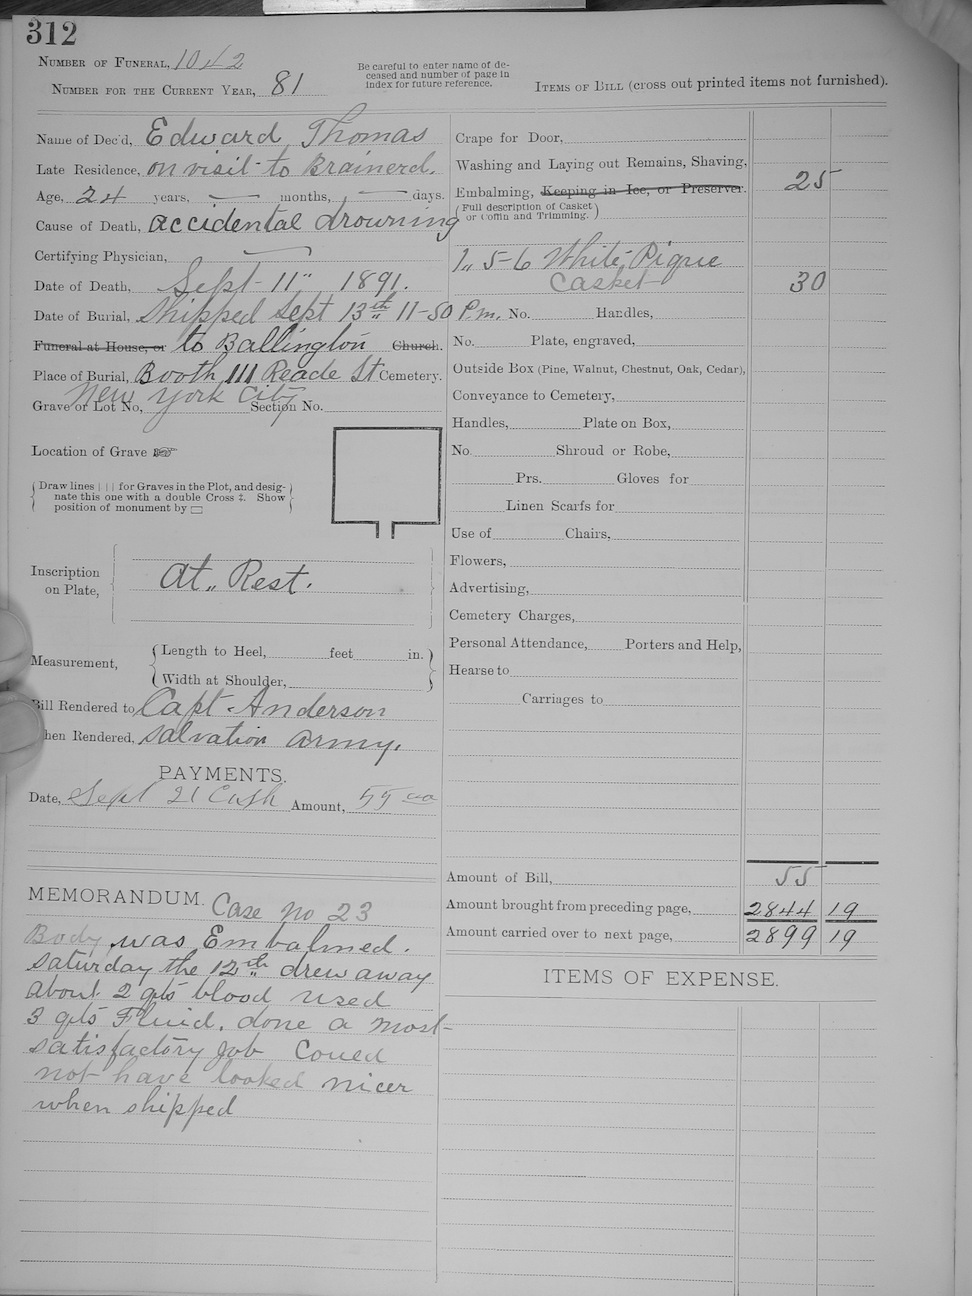 312
Number of Funeral, 1042
Number for the Current Year, 81
Be careful to enter name of de-
ceased and number of page in
index for future reference.
Items of Bill (cross out printed items not furnished).
Name of Dec'd, Edward Thomas
Late Residence, on visit to Brainerd.
Age, 24 years, — months, — days.
Cause of Death, accidental drowning
Certifying Physician, —
Date of Death, Sept 11" 1891.
Date of Burial, Shipped Sept 13th 11-50 P.m.
Funeral at House, or to Ballington Church.
Place of Burial, Booth 111 Reade St Cemetery.
New York City
Grave or Lot No, Section No.
Location of Grave ☞
Draw lines | | | for Graves in the Plot, and desig-
nate this one with a double Cross ‡. Show
position of monument by ▭
Inscription
on Plate,
At,, Rest.
Measurement,
Length to Heel, feet in.
Width at Shoulder,
Bill Rendered to Capt. Anderson
When Rendered, Salvation Army.
PAYMENTS.
Date, Sept 21 Cash Amount, 55 00
MEMORANDUM. Case no 23
Body was Embalmed.
Saturday the 12th drew away
About 2 qts blood used
3 qts Fluid. done a most
satisfactory job Coued
not have looked nicer
when shipped
Crape for Door,
Washing and Laying out Remains, Shaving,
Embalming, Keeping in Ice, or Preserver. 25
(Full description of Casket
or Coffin and Trimming.)
1,, 5-6 White Pique
Casket 30
No. Handles,
No. Plate, engraved,
Outside Box (Pine, Walnut, Chestnut, Oak, Cedar),
Conveyance to Cemetery,
Handles, Plate on Box,
No. Shroud or Robe,
Prs. Gloves for
Linen Scarfs for
Use of Chairs,
Flowers,
Advertising,
Cemetery Charges,
Personal Attendance, Porters and Help,
Hearse to
Carriages to
Amount of Bill, 55
Amount brought from preceding page, 2844 19
Amount carried over to next page, 2899 19
ITEMS OF EXPENSE.